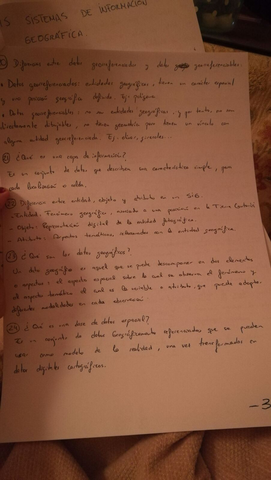 ES SISTEMAS DE INFORMACIÓN
GEOGRÁFICA.
Diferencia entre dato georreferenciado y dato georreferenciable.
• Datos georreferenciados: entidades geográficas, tienen un carácter espacial
y una posición geográfica definida. Ej: polígono.
• Datos georreferenciables: no son entidades geográficas, y por tanto, no son
directamente dibujables, no tienen geometría pero tienen un vínculo con
alguna entidad georreferenciada. Ej:
¿Qué es una capa de información?
Es un conjunto de datos que describen una característica simple, para
cada
Diferencia entre entidad, objeto y atributo en un SIG
- Entidad: Fenómeno geográfico, a una posición en la Tierra
- Objeto: Representación digital de la entidad
- Atributo: temática, a la entidad geográfica.
¿Qué son los datos geográficos?
Un dato geográfico es aquel que se puede descomponer en dos elementos
o aspectos: el aspecto espacial sobre la cual se observa el fenómeno y
el aspecto temático el cual es la variable o atributo, que puede adoptar
diferentes modalidades en cada observación
¿Qué es una base de datos espacial?
Es un conjunto de datos Geográficamente referenciados que se pueden
usar como modelo de la realidad, una vez transformados en
datos digitales cartográficos.
- 3